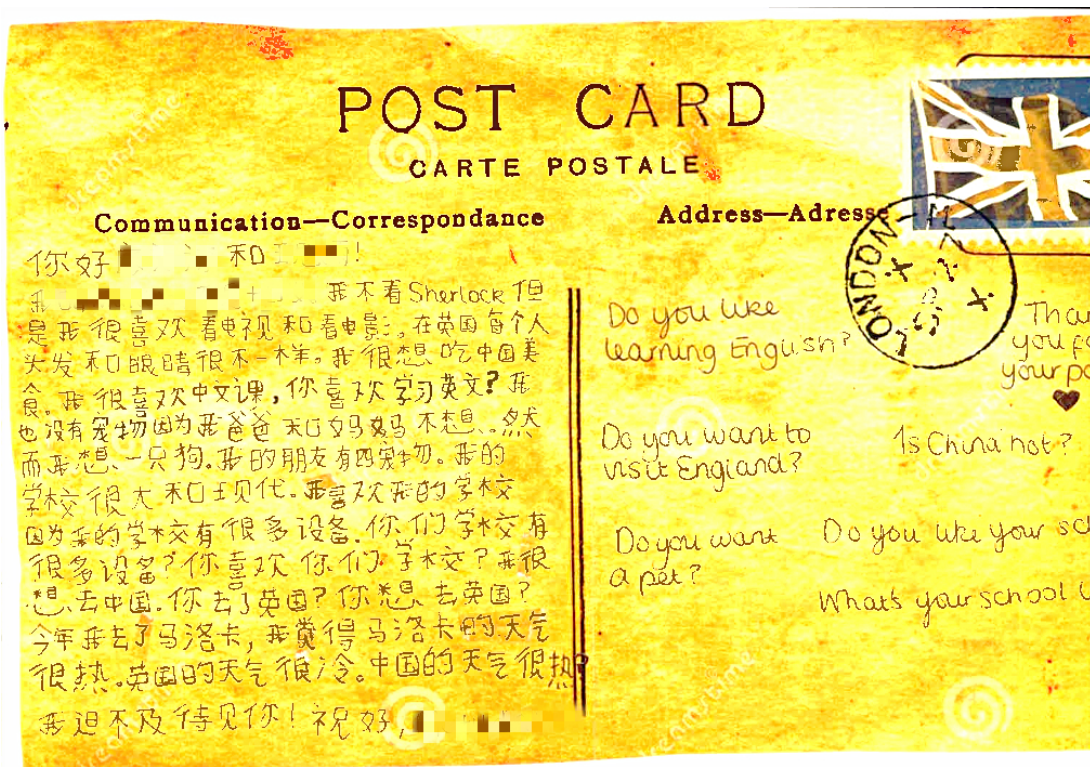 POST CARD
CARTE POSTALE
Communication—Correspondance
Address—Adresse
LONDON
你好 和 !
我 我不看Sherlock但
是我很喜欢看电视和看电影。在英国每个人
头发和眼睛很不一样。我很想吃中国美
食。我很喜欢中文课,你喜欢学习英文?我
也没有宠物因为我爸爸和妈妈不想。然
而我想一只狗.我的朋友有四宠物。我的
学校很大和现代。我喜欢我的学校
因为我的学校有很多设备.你们学校有
很多设备?你喜欢你们学校?我很
想去中国.你去了英国?你想去英国?
今年我去了马洛卡,我觉得马洛卡的天气
很热。英国的天气很冷。中国的天气很热?
我迫不及待见你!祝好,
Do you like
learning English?
Do you want to
visit England?
Is China hot?
Do you want
a pet?
Do you like your
What's your school
dreamstime